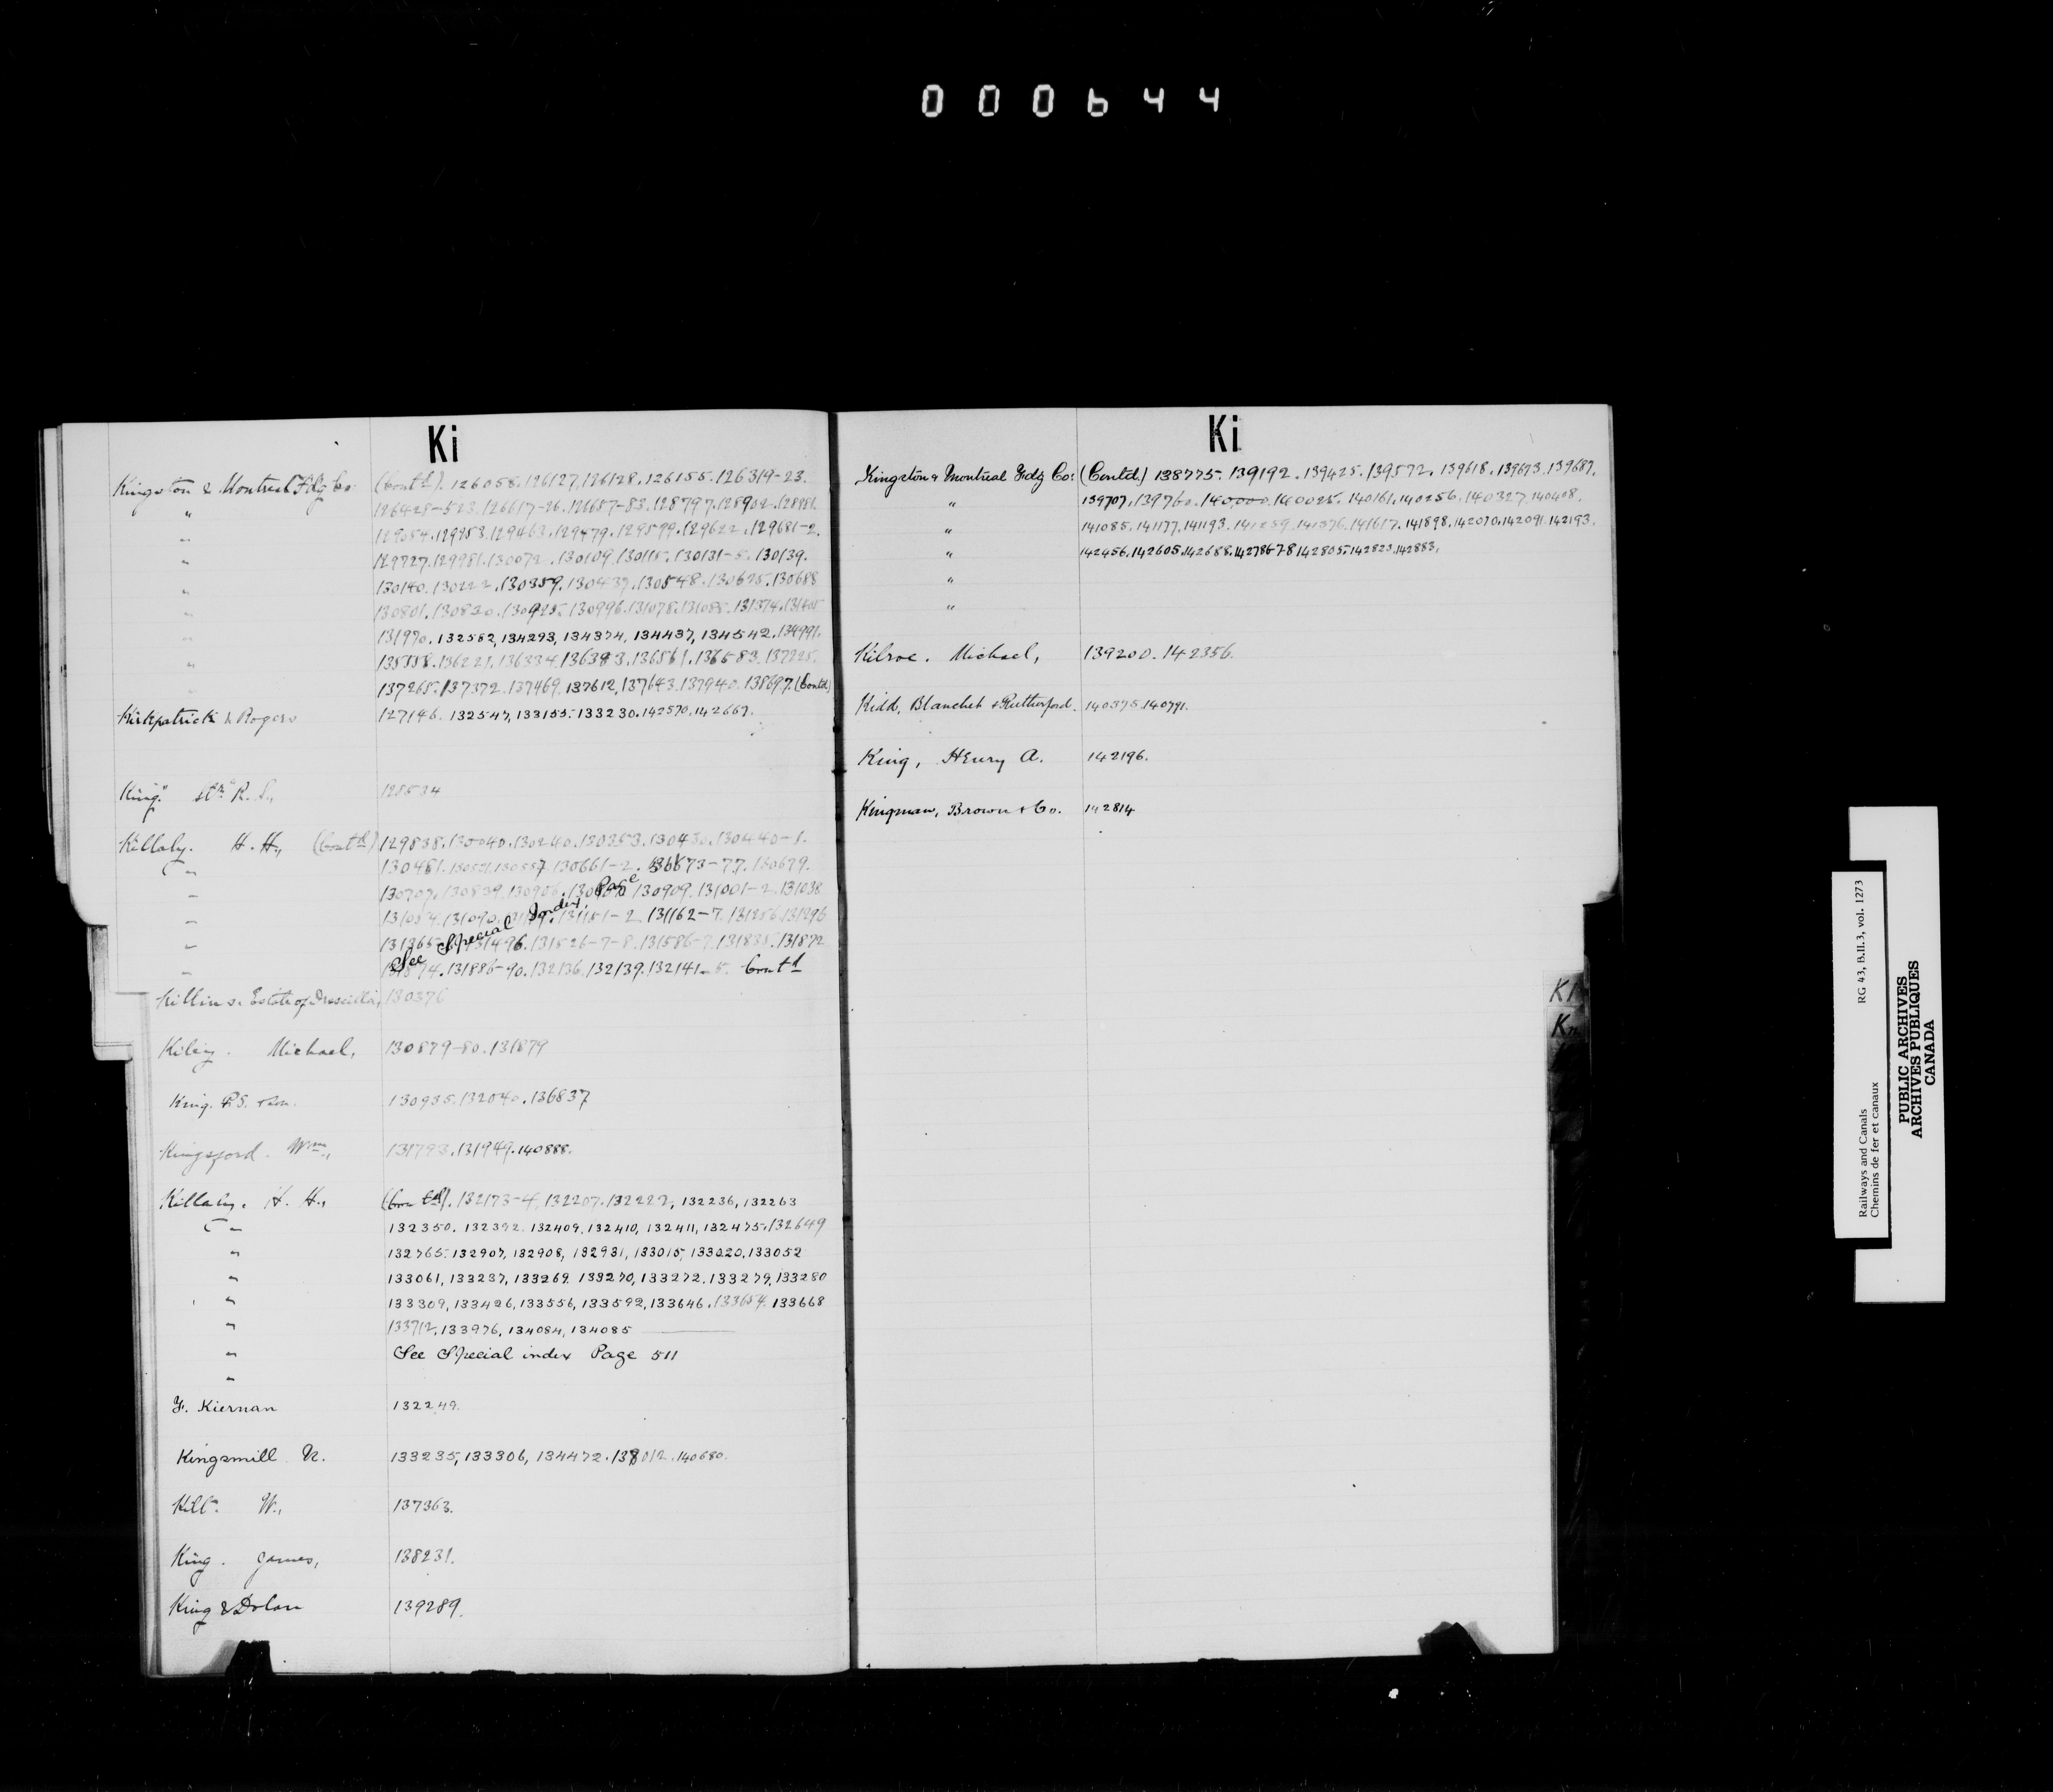 000644
Ki
Kingston & Montreal Fdg Co. (Contd). 126058.126127.126128.126155.126319-23.
" 126428-523.126617-26.126657-83.128797.128902.128981.
" 129463.129479.129599.129622.129681-2.
" 129727.129981.130072.130109.130115.130131-5.130139.
" 130140.130222.130359.130437.130548.130625.130688
" 130801.130820.130925.130996.131078.131085.131374.
" 131970.132582,134293,134374,134437,134542.134991.
" 136221.136334.136383.136561.136583.137225.
137265.137372.137469.137612,137643.137940.138697.(Contd)
Kirkpatrick & Rogers 127146.132547,133155.133230.142570.142667.
King. R. S., 128534
Killaly. H. H., (Contd) 129838.130040.130240.130353.130440-1.
" 130661-2. 130679.
" 130707.130839. 130909.131001-2.131038
" 131090. 131162-7.
" 131496.131526-7-8.131586-7.131835.131872
" 131886-90.132136.132139.132141-5. Contd
See Special Index. Page
Killins. Estate of 130376
Kiley. Michael, 130879-80.131879
King. P.S. & Son. 130935.132040.136837
Kingsford. Wm., 131793.131949.140888.
Killaly. H. H., (Contd). 132173-4.132207.132222,132236,132263
" 132350.132392.132409,132410,132411,132475.132649
" 132765.132907,132908,132931,133015,133020,133052
" 133061,133237,133269.133270,133272.133279,133280
" 133309,133426,133556,133592,133646.133654.133668
" 133712,133976,134084,134085
" See Special index Page 511
"
F. Kiernan 132249.
Kingsmill N. 133235,133306,134472. 140680.
Kilt. W., 137363.
King. James, 138231.
King & Dolan 139289.
Ki
Kingston & Montreal Fdg Co: (Contd) 138775.139192.139425.139572.139618.139673.139687.
" 139707.139760.140000.140025.140161.140256.140327.140408.
" 141085.141177.141193. 141376.141617.141898.142070.142091.142193.
" 142456.142605.142688.142786-7-8.142805.142823.142883.
"
"
Kilroe. Michael, 139200.142356.
Kidd, Blanchet & Rutherford. 140375.140791.
King, Henry A. 142196.
Kingman, Brown & Co. 142814
Kl
Kn
Railways and Canals RG 43, B.II.3, vol. 1273
Chemins de fer et canaux
PUBLIC ARCHIVES
ARCHIVES PUBLIQUES
CANADA